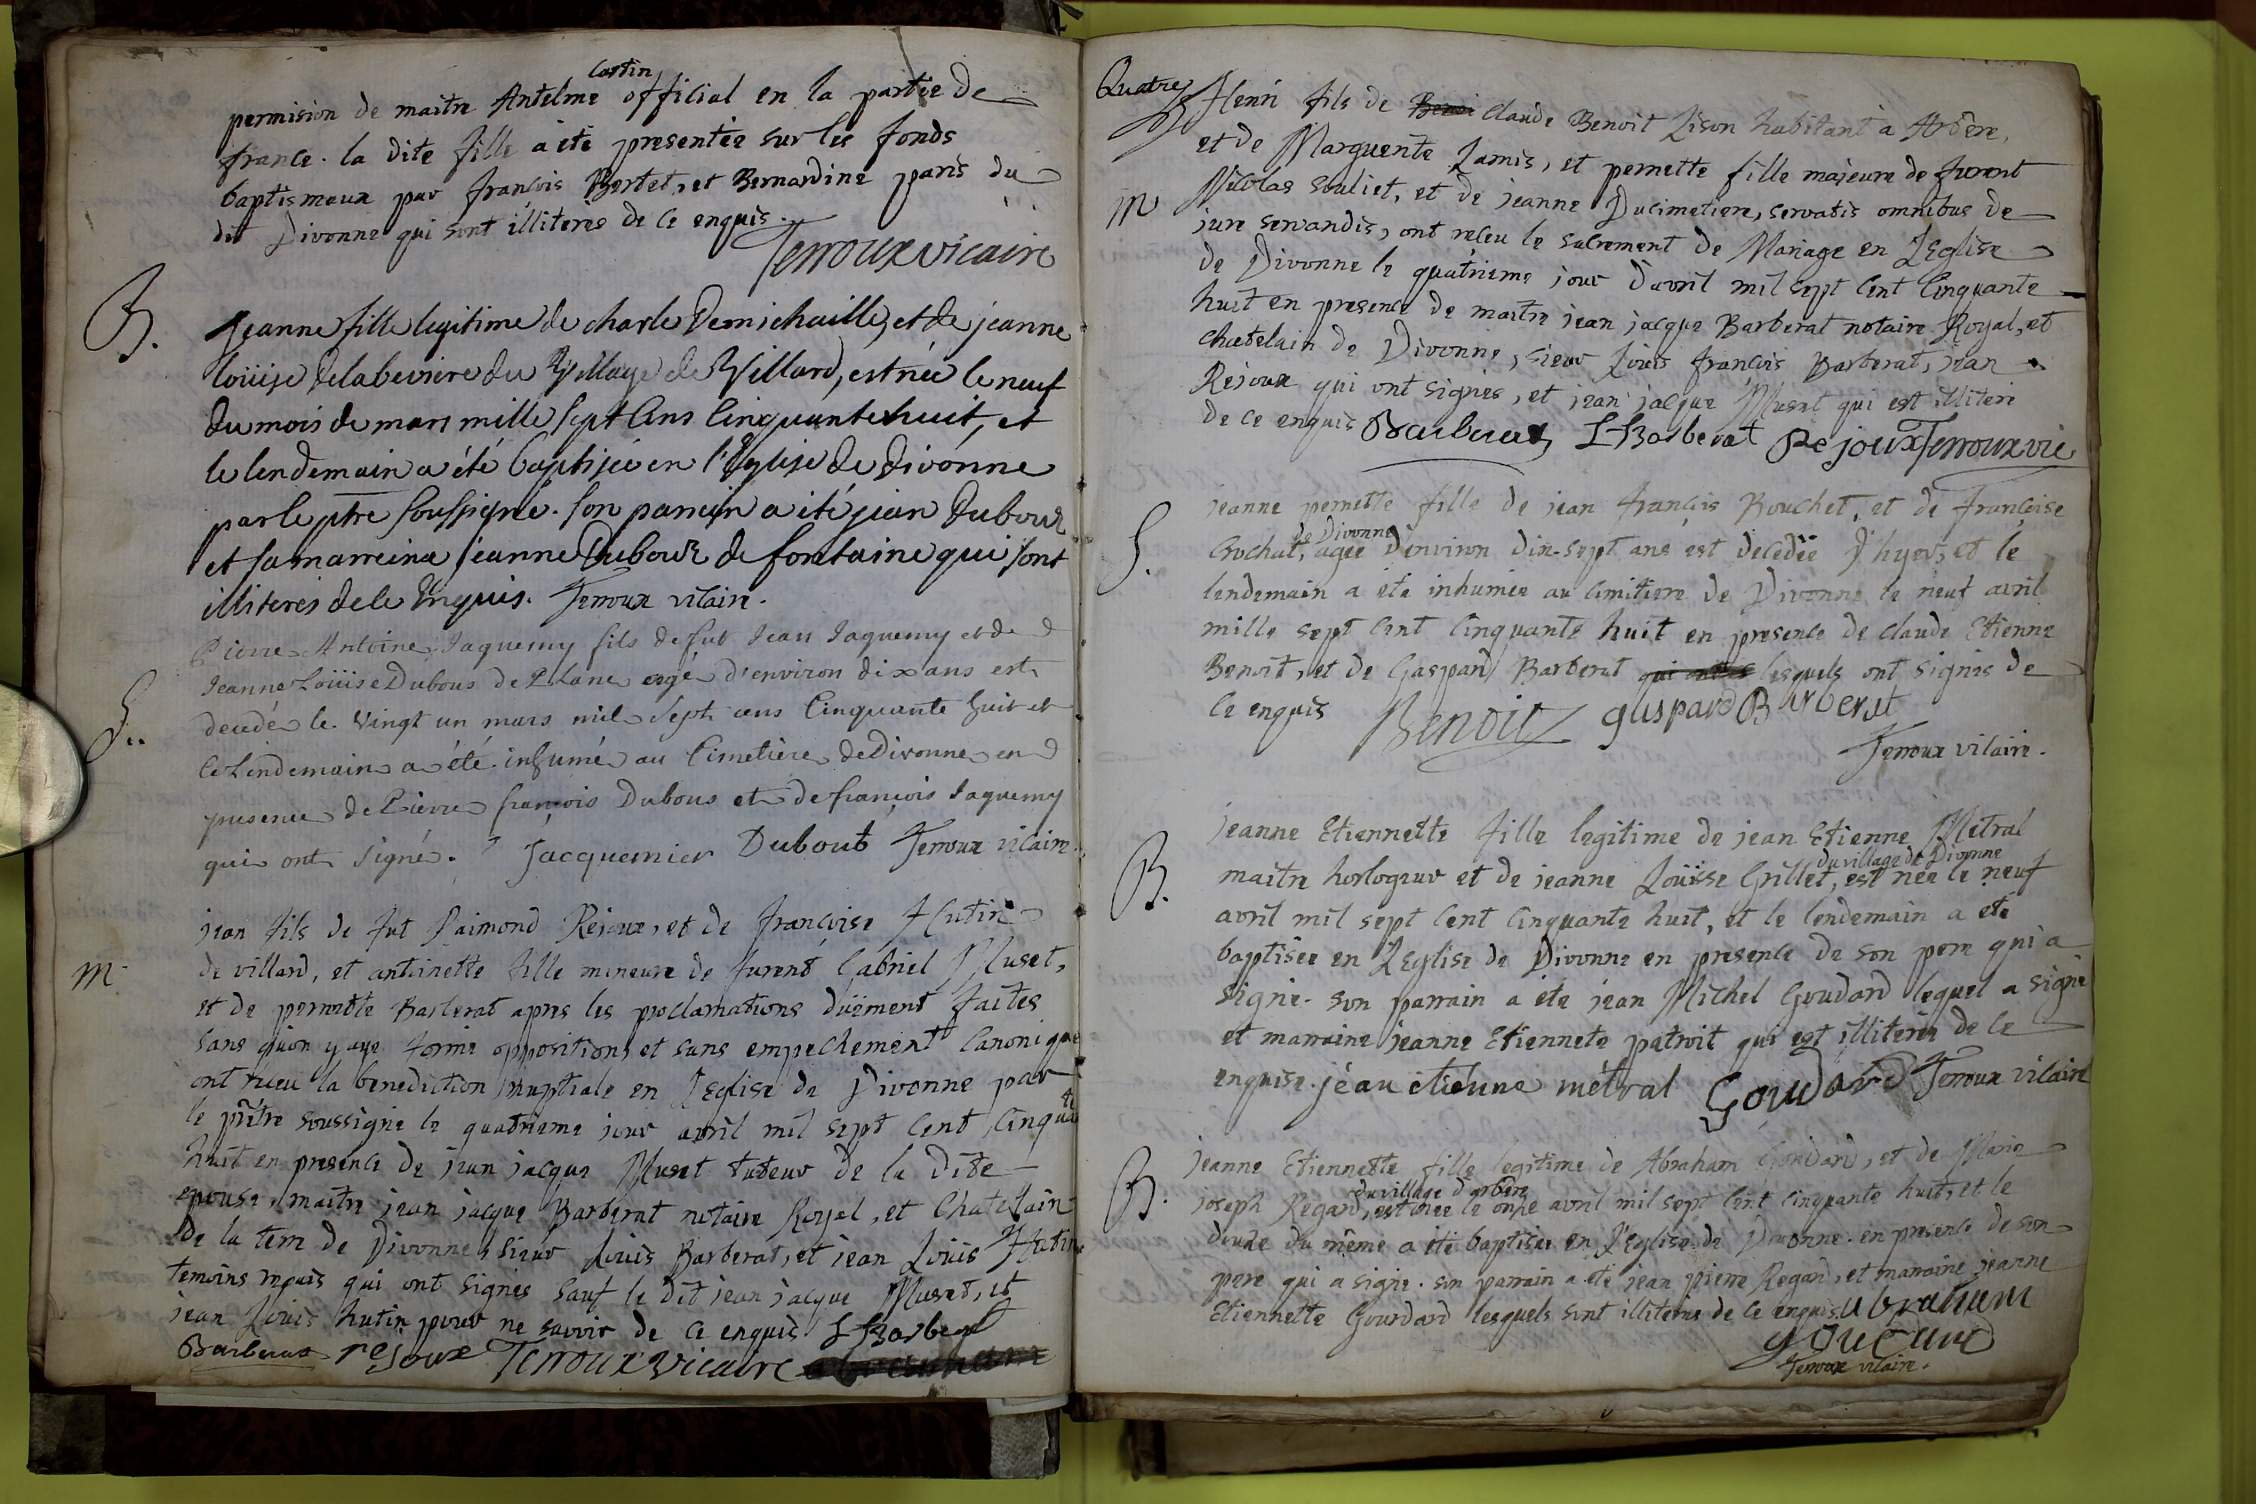 Castin
permision de maitre Antelme official en la partie de
france. la dite fille a èté presentée sur les fonds
baptismaux par françois Bertet, et Bernardine paris du
dit Divonne qui sont illiteres de ce enquis.
Terroux vicaire
B.
Jeanne fille legitime de charle Demichaille, et de jeanne
Loüise Delabeviere du Village de Villard, est née le neuf
du mois de mars mille sept Cens Cinquante huit, et
le lendemain a été baptisée en l'Eglise de divonne
par le ptre soussigné. son parrein a été jean Dubout
et sa marreine jeanne Dubout de fontaine qui sont
illiteres de ce Enquis. Terroux vicaire.
S..
Pierre Antoine Jaquemy fils de fut Jean Jaquemy et de
Jeanne Loüise Dubous de Plane agé d'environ dix ans est
decedé le vingt un mars mil sept cens Cinquante huit et
le Lendemain a été inhumé au Cimetiére de Divonne en
presence de Pierre françois Dubous et de françois Jaquemy
qui ont signé. Jacquemier Dubout Terroux vicaire.
m.
jean fils de fut Raimond Rejoux, et de françoise Hutin
de villard, et antoinette fille mineure de furent Gabriel Muset,
et de pernette Barberat apres les proclamations düement faites
sans qu'on y aye formé oppositions et sans empechement Canonique
ont receu la benediction nuptiale en L'Eglise de Divonne par
le prêtre soussigné le quatrieme jour avril mil sept cent Cinquante
huit en presence de jean jacque Muset tuteur de la dite
epouse, maitre jean jacque Barberat notaire Royal, et Chatelain
de la terre de Divonne, sieur Louis Barberat, et jean Louis Hutin
temoins requis qui ont signés sauf le dit jean jacque Muset, et
jean Louis hutin pour ne savoir de ce enquis L Barberat
Barberat rejoux Terroux vicaire
Quatre
m
Henri fils de Benoi Claude Benoit Lison habitant a Arbere,
et de Marguerite Lamis, et pernette fille majeure de furent
Nicolas Souliet, et de jeanne Ducimetiere, servatis omnibus de
jure servandis, ont receu le sacrement de Mariage en L'Eglise
de Divonne le quatrieme jour d'avril mil sept cent Cinquante
huit en presence de maitre jean jacque Barberat notaire Royal, et
chatelain de Divonne, sieur Louis françois Barberat, jean
Rejoux qui ont signés, et jean jacque Muset qui est illiteré
de ce enquis Barberat L Barberat Rejoux Terroux vic
S.
jeanne pernette fille de jean françois Bouchet, et de françoise
de Divonne
Crochat, agée d'environ dix-sept ans est decedée d'hyer, et le
lendemain a été inhumée au cimitiere de Divonne le neuf avril
mille sept cent cinquante huit en presence de claude Etienne
Benoit, et de Gaspard Barberat qui ont lesquels ont signés de
ce enquis Benoit gaspard Barberat
Terroux vicaire.
B.
jeanne Etiennette fille legitime de jean Etienne Métral
du village de Divonne
maitre horlogeur et de jeanne Loüise Grillet, est née le neuf
avril mil sept cent cinquante huit, et le lendemain a été
baptisée en L'Eglise de Divonne en presence de son pere qui a
signé. son parrain a été jean Michel Goudard lequel a signé
et marraine jeanne Etiennete patroit qui est illiterée de ce
enquise. jéan etienne métral Goudard Terroux vicaire
B.
jeanne Etiennette fille legitime de Abraham Goudard, et de Marie
du village d'arbere
joseph Regard, est née le onze avril mil sept cent cinquante huit, et le
douze du même a été baptisée en L'Eglise de Divonne en presence de son
pere qui a signé. son parrain a été jean pierre Regard, et marraine jeanne
Etiennette Gourdard lesquels sont illiteres de ce enquis. abraham
goudard
Terroux vicaire.